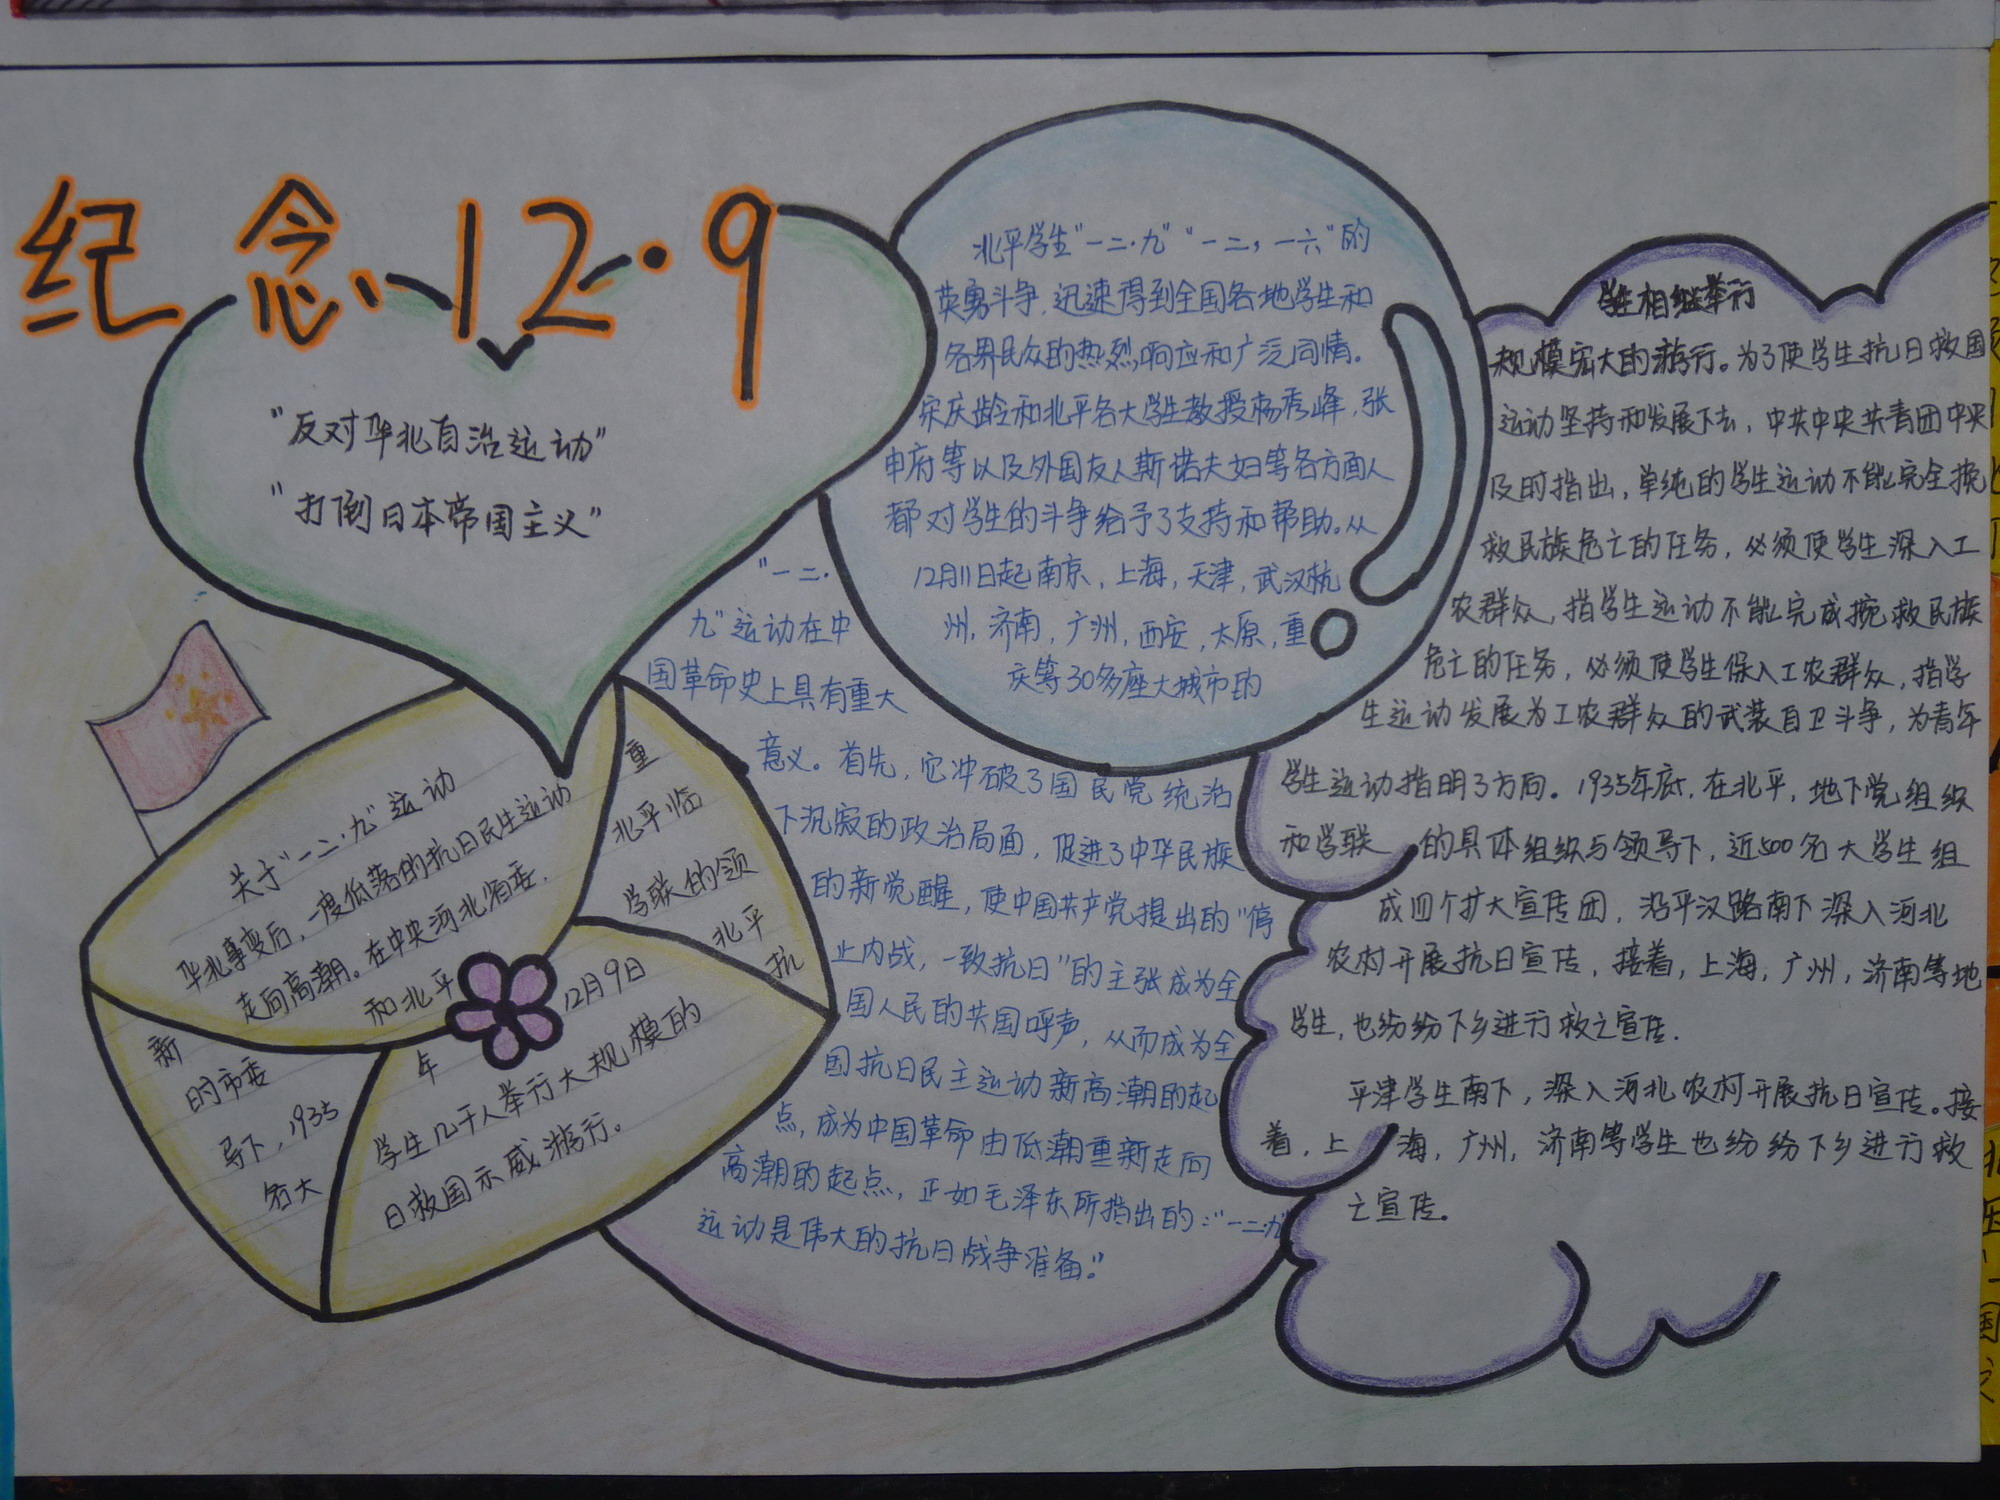 纪念12·9
"反对华北自治运动"
"打倒日本帝国主义"
关于"一二·九"运动
华北事变后，一度低落的抗日民生运动重
新走向高潮。在中央河北省委，北平临
的市委和北平学联的领
导下，1935年12月9日北平
各大学生几千人举行大规模的抗
日救国示威游行。
北平学生"一二·九""一二，一六"的
英勇斗争，迅速得到全国各地学生和
各界民众的热烈响应和广泛同情。
宋庆龄和北平各大学生教授杨秀峰，张
申府等以及外国友人斯诺夫妇等各方面人
都对学生的斗争给予了支持和帮助。从
12月11日起南京，上海，天津，武汉杭
州，济南，广州，西安，太原，重
庆等30多座大城市的
学生相继举行
规模宏大的游行。为了使学生抗日救国
运动坚持和发展下去，中共中央共青团中央
及时指出，单纯的学生运动不能完全挽
救民族危亡的任务，必须使学生深入工
农群众，指学生运动不能完成挽救民族
危亡的任务，必须使学生保入工农群众，指学
生运动发展为工农群众的武装自卫斗争，为青年
学生运动指明了方向。1935年底，在北平，地下党组织
和学联的具体组织与领导下，近500名大学生组
成四个扩大宣传团，沿平汉路南下深入河北
农村开展抗日宣传，接着，上海，广州，济南等地
学生，也纷纷下乡进行救亡宣传．
平津学生南下，深入河北农村开展抗日宣传。接
着，上海，广州，济南等学生也纷纷下乡进行救
亡宣传。
"一二·
九"运动在中
国革命史上具有重大
意义。首先，它冲破了国民党统治
下沉寂的政治局面，促进了中华民族
的新觉醒，使中国共产党提出的"停
止内战，一致抗日"的主张成为全
国人民的共国呼声，从而成为全
国抗日民主运动新高潮的起
点，成为中国革命由低潮重新走向
高潮的起点，正如毛泽东所指出的："一二·九
运动是伟大的抗日战争准备。"